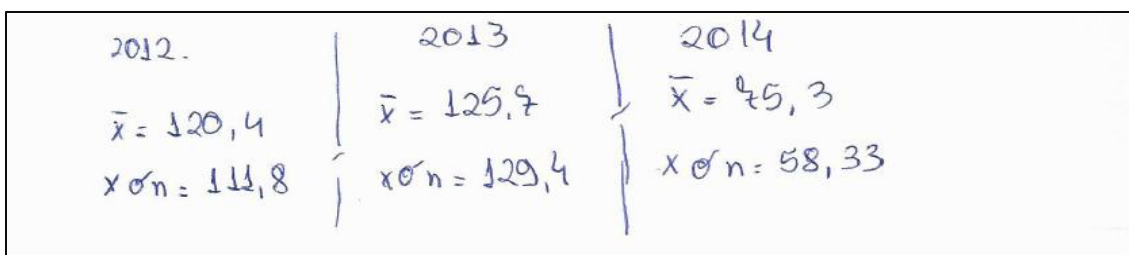 2012.
x̄ = 120,4
xσn = 111,8
2013
x̄ = 125,7
xσn = 129,4
2014
x̄ = 75,3
xσn = 58,33